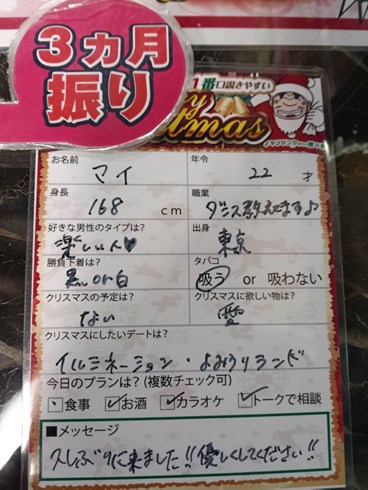 3ヵ月
振り
1番口説きやすい
お名前 年令
マイ 22 才
身長 職業
168 cm ダンス教えてます♪
好きな男性のタイプは? 出身
楽しい人♥ 東京
勝負下着は? タバコ
黒or白 吸う or 吸わない
クリスマスの予定は? クリスマスに欲しい物は?
ない 愛
クリスマスにしたいデートは?
イルミネーション・よみうりランド
今日のプランは?(複数チェック可)
食事 お酒 カラオケ トークで相談
■メッセージ
久しぶりに来ました!!優しくしてください!!